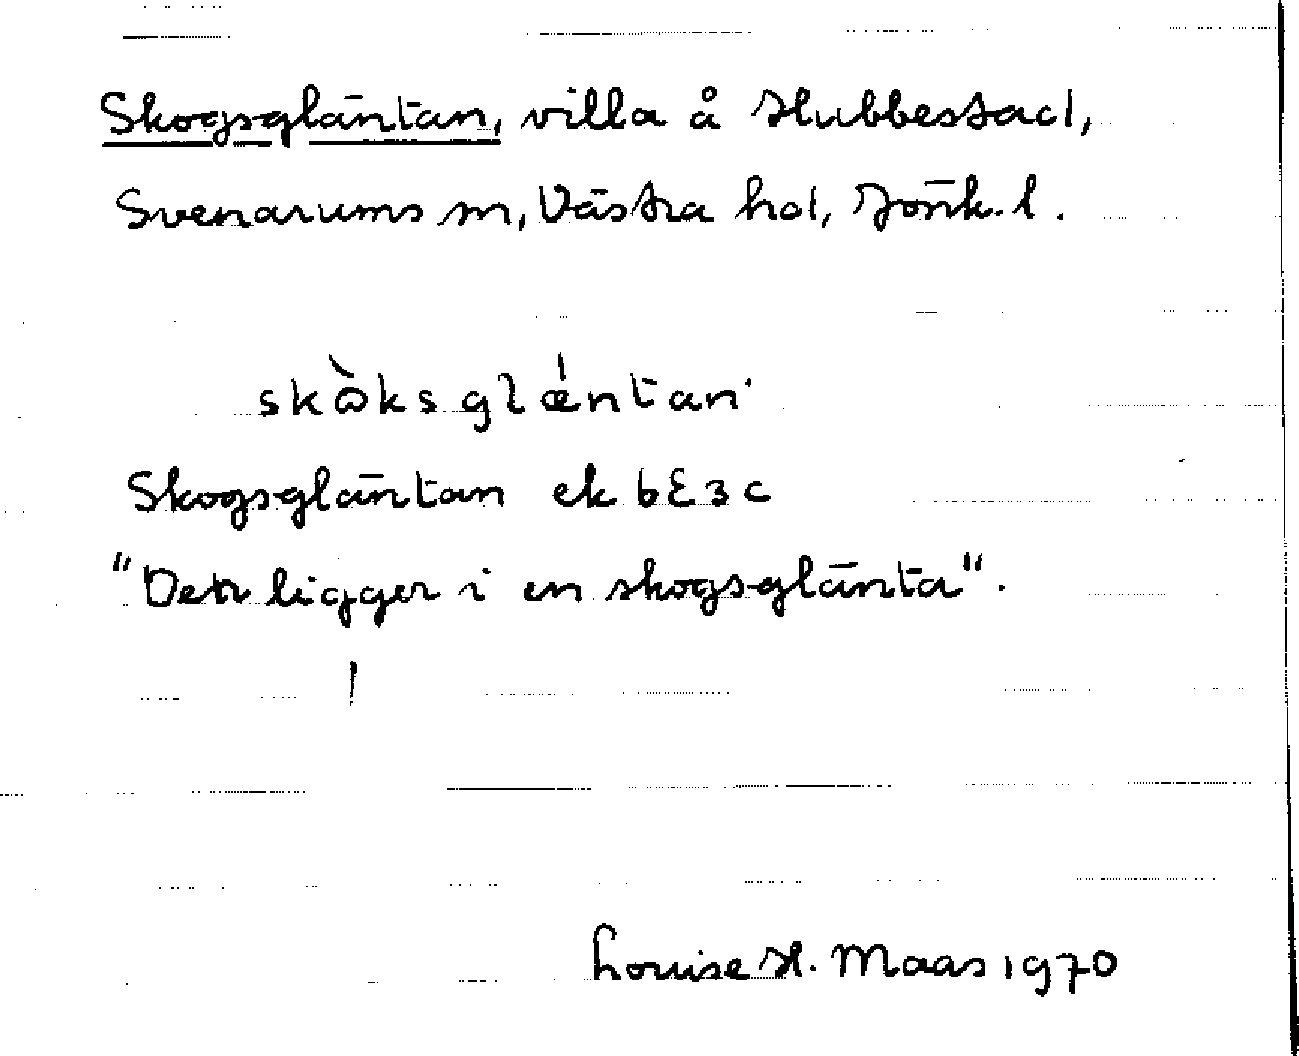 Skogsgläntan, villa å Hubbestad,
Svenarums sn, Västra hd, Jönk. l.
skɷ̀ksglæ̀ntan
Skogsgläntan ek bE3c
"Den ligger i en skogsglänta".
Louise H. Maas 1970